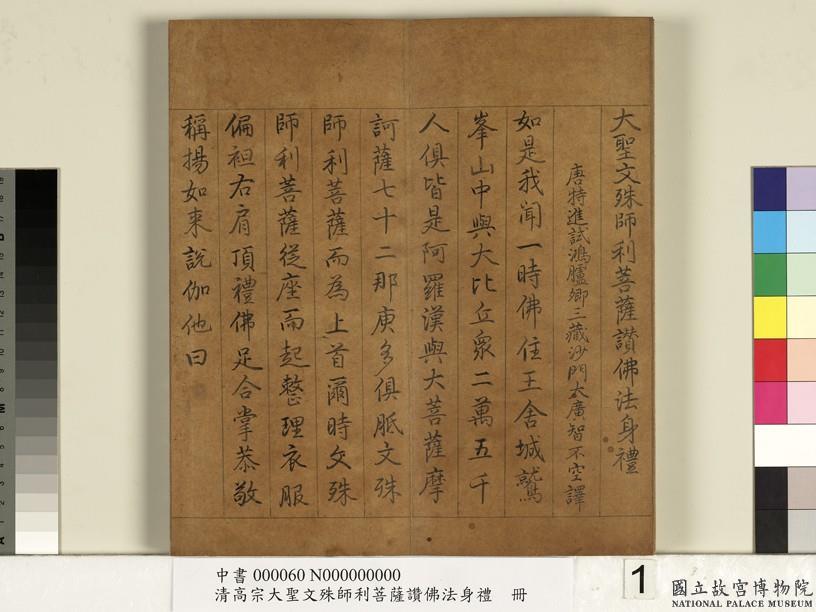 大聖文殊師利菩薩讚佛法身禮
唐特進試鴻臚卿三藏沙門大廣智不空譯
如是我聞一時佛住王舍城鷲
峯山中與大比丘眾二萬五千
人俱皆是阿羅漢與大菩薩摩
訶薩七十二那庾多俱胝文殊
師利菩薩而為上首爾時文殊
師利菩薩從座而起整理衣服
偏袒右肩頂禮佛足合掌恭敬
稱揚如来說伽他曰
中書 000060 N000000000
清高宗大聖文殊師利菩薩讚佛法身禮 冊
1
國立故宮博物院
NATIONAL PALACE MUSEUM